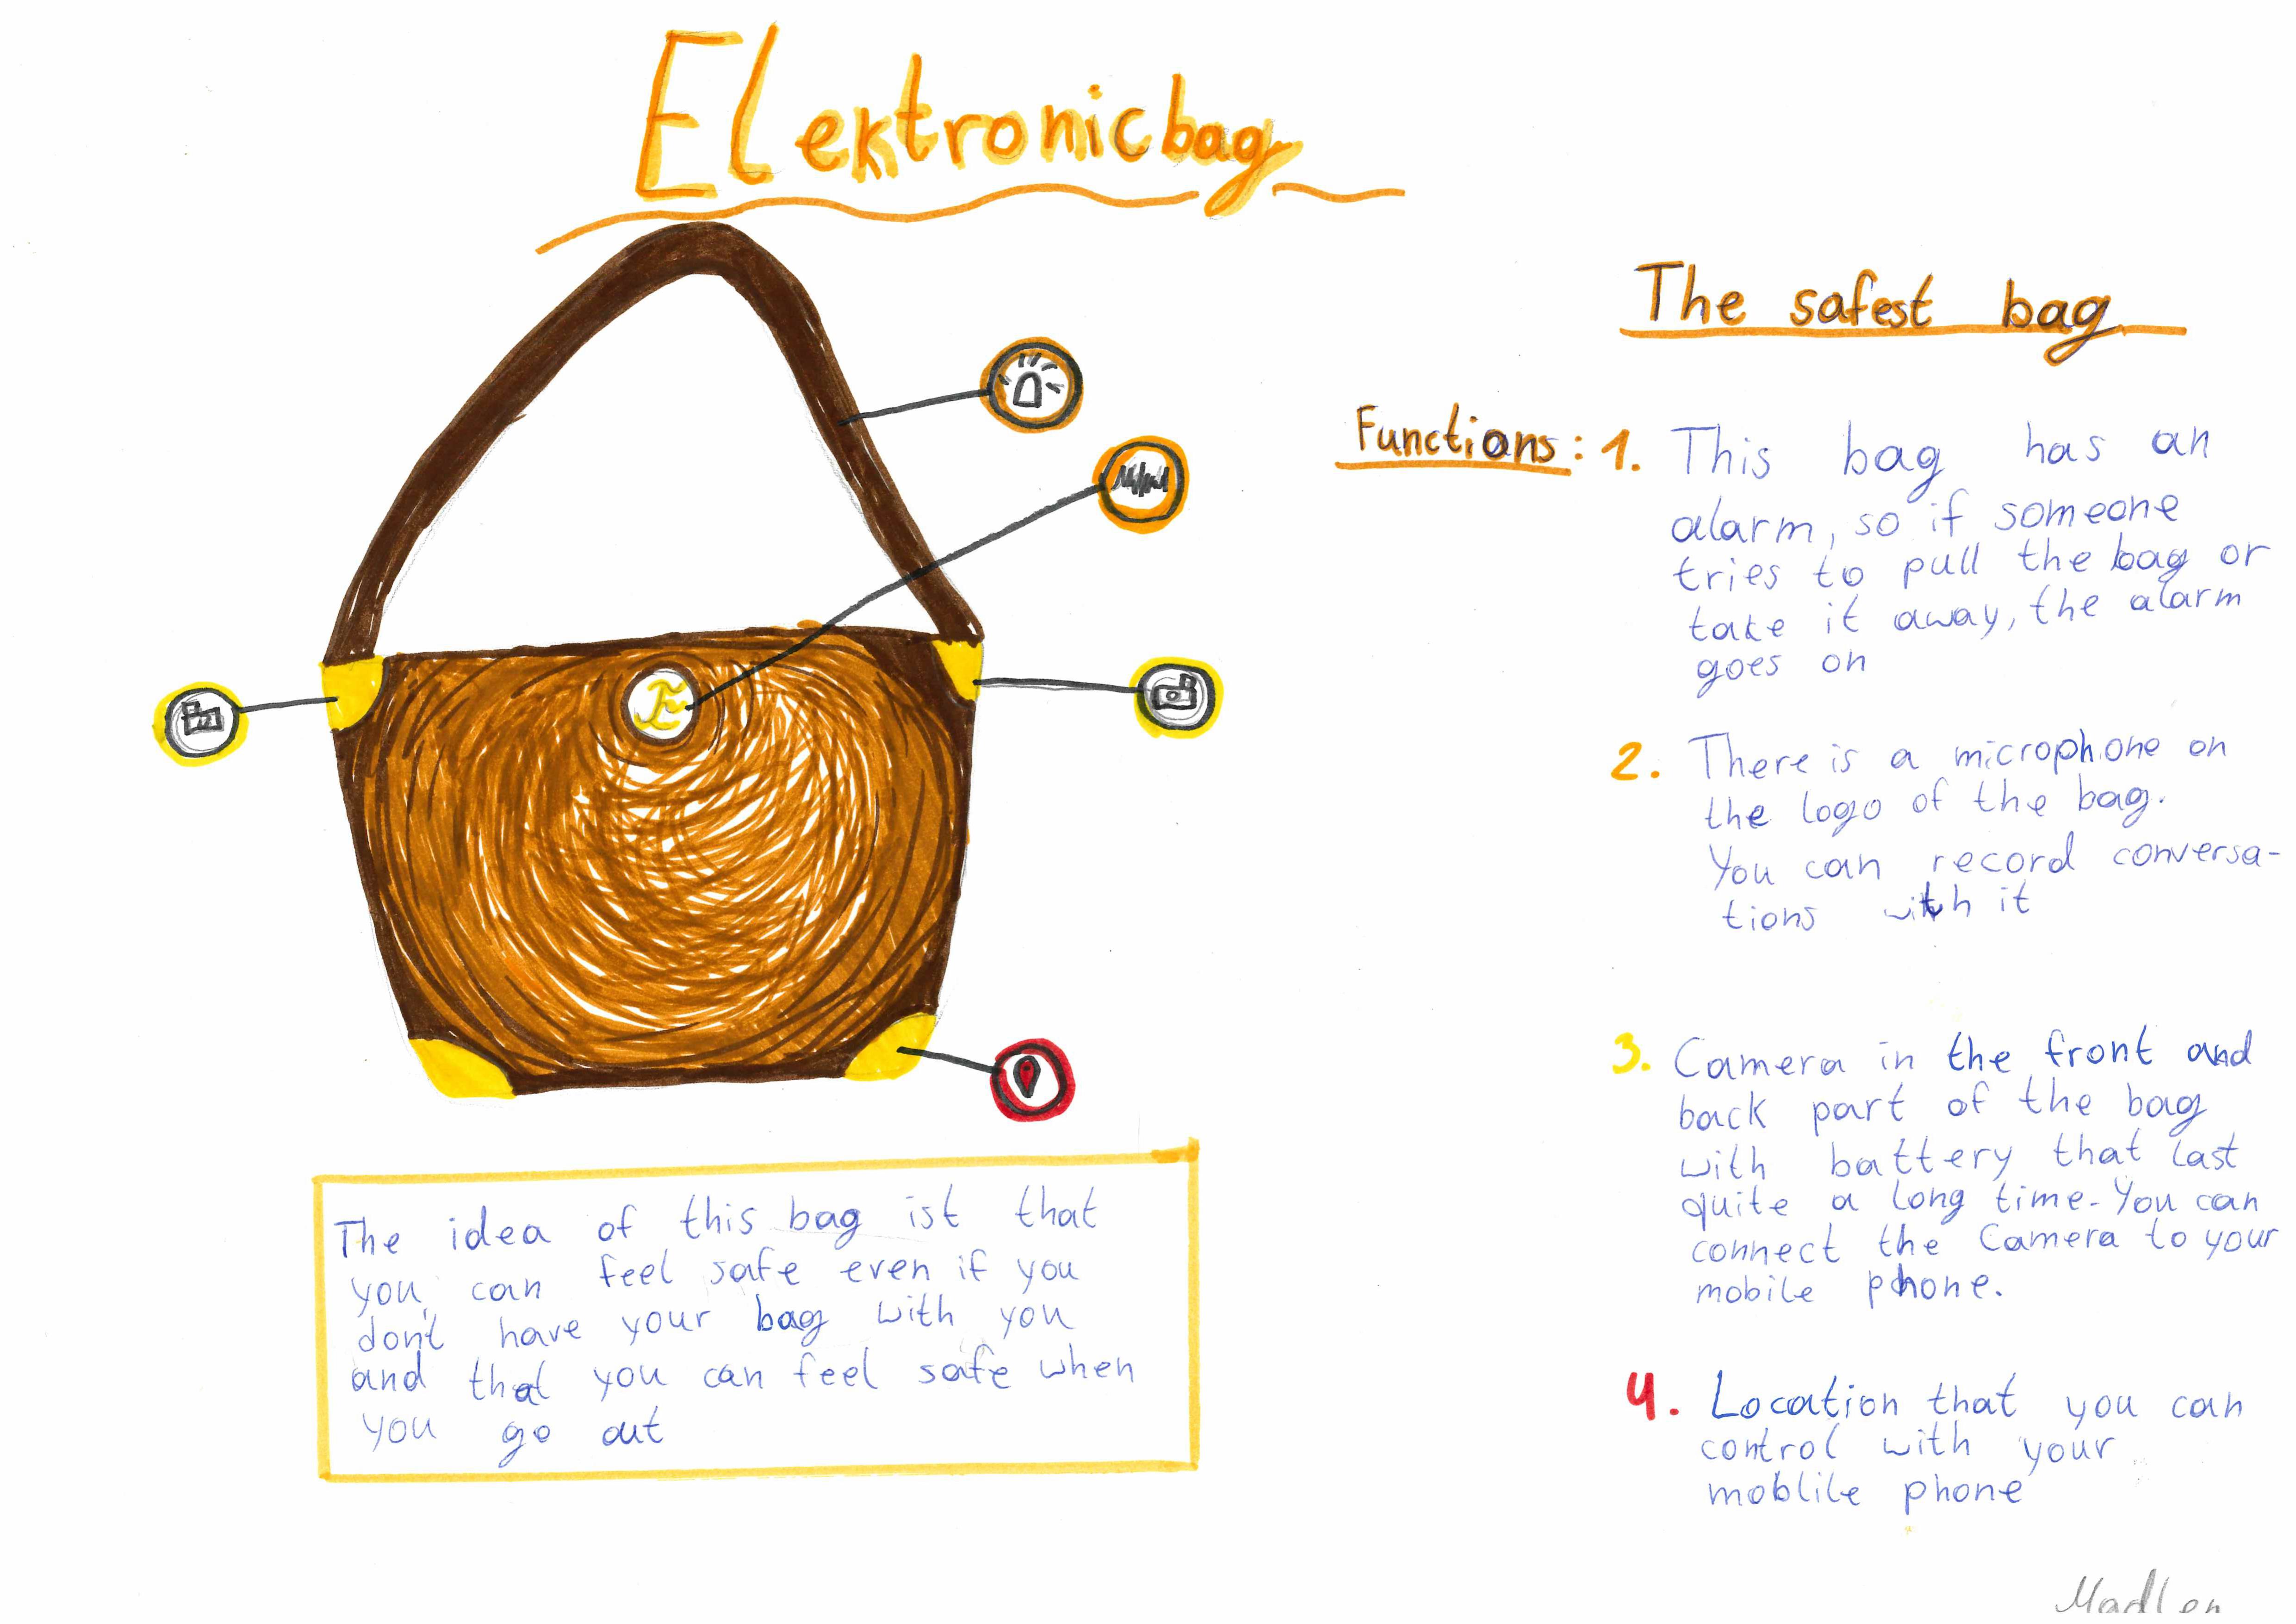 Elektronicbag
The safest bag
Functions: 1. This bag has an
alarm, so if someone
tries to pull the bag or
take it away, the alarm
goes on
2. There is a microphone on
the logo of the bag.
You can record conversa-
tions with it
3. Camera in the front and
back part of the bag
with battery that last
quite a long time. You can
connect the Camera to your
mobile phone.
4. Location that you can
control with your
moblile phone
The idea of this bag ist that
you can feel safe even if you
don't have your bag with you
and that you can feel safe when
you go out
Madlen